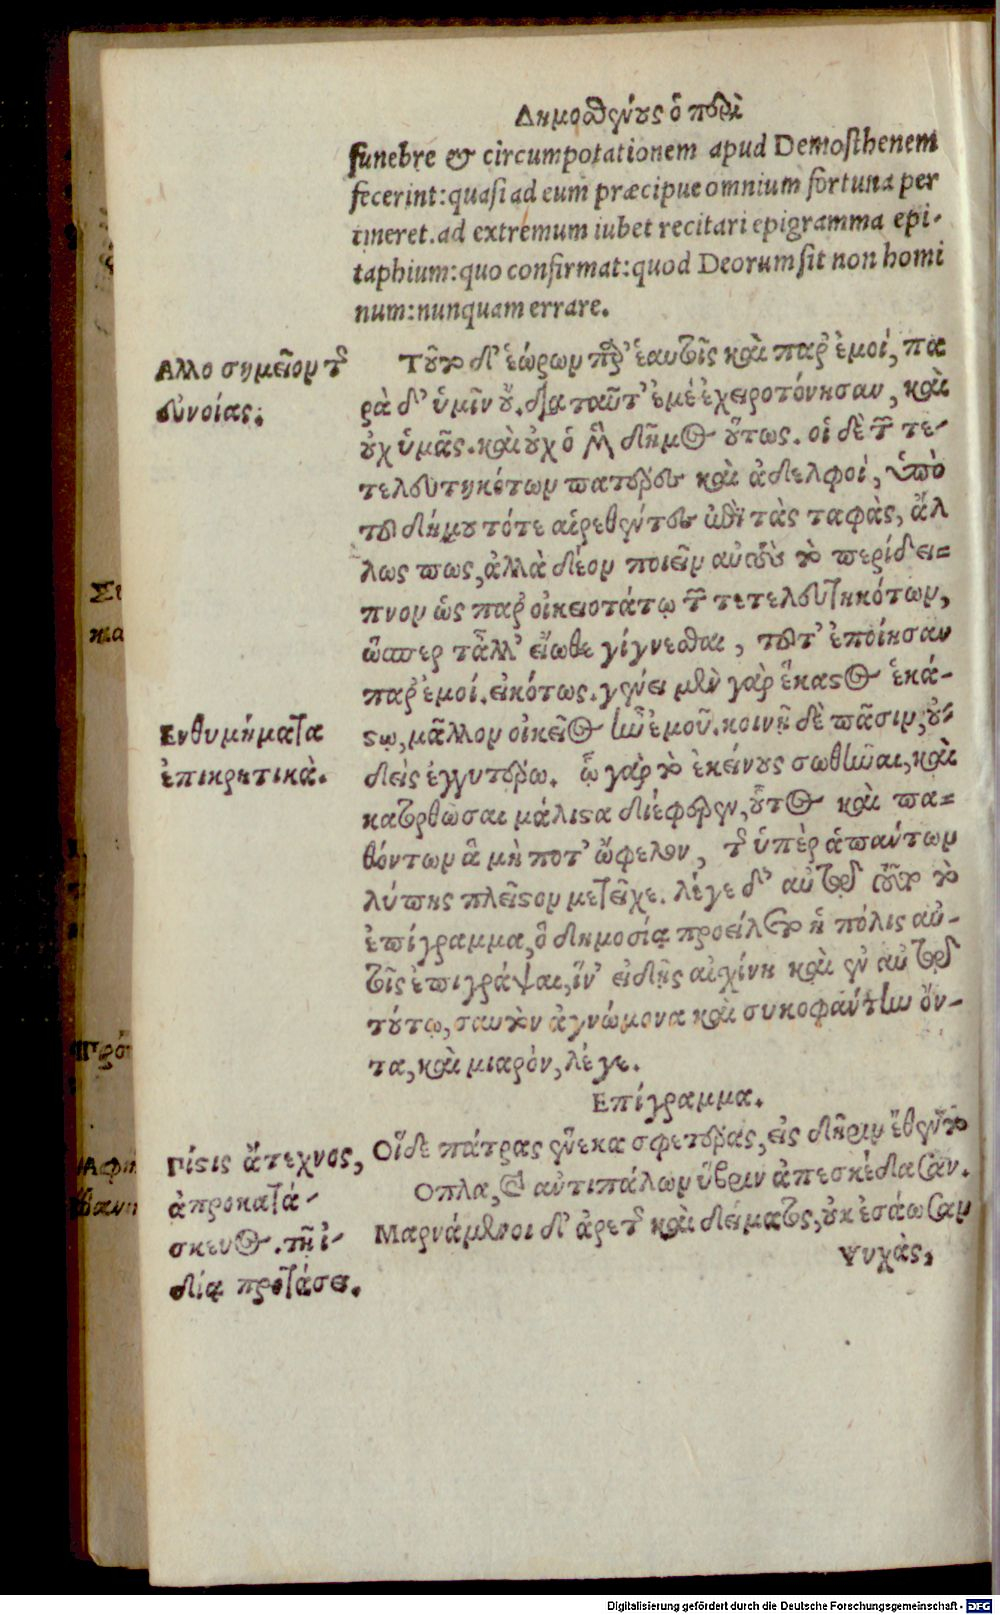 Δημοσθένους ὁ περὶ
funebre & circumpotationem apud Demosthenem
fecerint: quasi ad eum præcipue omnium fortuna per
tineret. ad extremum iubet recitari epigramma epi-
taphium: quo confirmat: quod Deorum sit non homi
num: nunquam errare.
Αλλο σημεῖον τῆς
εὐνοίας.
Τοῦτο δ' ἑώρων παρ' ἑαυτοῖς καὶ παρ' ἐμοί, πα
ρὰ δ' ὑμῖν οὔ. διὰ ταῦτ' ἐμὲ ἐχειροτόνησαν, καὶ
οὐχ ὑμᾶς. καὶ οὐχ ὁ μὲν δῆμος οὕτως. οἱ δὲ τῶν τε-
τελευτηκότων πατέρες καὶ ἀδελφοί, ὑπὸ
τοῦ δήμου τότε αἱρεθέντες ἐπὶ τὰς ταφὰς, ἄλ
λως πως, ἀλλὰ δέον ποιεῖν αὐτοὺς τὸ περίδει=
πνον ὡς παρ' οἰκειοτάτῳ τῶν τετελευτηκότων,
ὥσπερ τἆλλ' εἴωθε γίγνεσθαι, τοῦτ' ἐποίησαν
παρ' ἐμοί. εἰκότως. γένει μὲν γὰρ ἕκαστος ἑκά-
στῳ, μᾶλλον οἰκεῖος ἦν ἐμοῦ. κοινῇ δὲ πᾶσιν, οὐ-
δεὶς ἐγγυτέρω. ᾧ γὰρ τὸ ἐκείνους σωθῆναι, καὶ
κατορθῶσαι μάλιστα διέφερεν, οὗτος καὶ πα=
θόντων ἃ μὴ ποτ' ὤφελον, τῆς ὑπὲρ ἁπάντων
λύπης πλεῖστον μετεῖχε. λέγε δ' αὐτῷ τουτὶ τὸ
ἐπίγραμμα, ὃ δημοσίᾳ προείλετο ἡ πόλις αὐ-
τοῖς ἐπιγράψαι, ἵν' εἰδῇς αἰσχίνη καὶ ἐν αὐτῷ
τούτῳ, σαυτὸν ἀγνώμονα καὶ συκοφάντην ὄν-
τα, καὶ μιαρὸν, λέγε.
Ενθυμήματα
ἐπικριτικὰ.
Επίγραμμα.
Οἵδε πάτρας ἕνεκα σφετέρας, εἰς δῆριν ἔθεντο
Οπλα, καὶ ἀντιπάλων ὕβριν ἀπεσκέδασαν.
Μαρνάμενοι δ' ἀρετῆς καὶ δείματος, οὐκ ἐσάωσαν
ψυχὰς,
Πίστις ἄτεχνος,
ἀπροκατά-
σκευος. τῇ ἰ-
δίᾳ προτάσει.
Digitalisierung gefördert durch die Deutsche Forschungsgemeinschaft - DFG